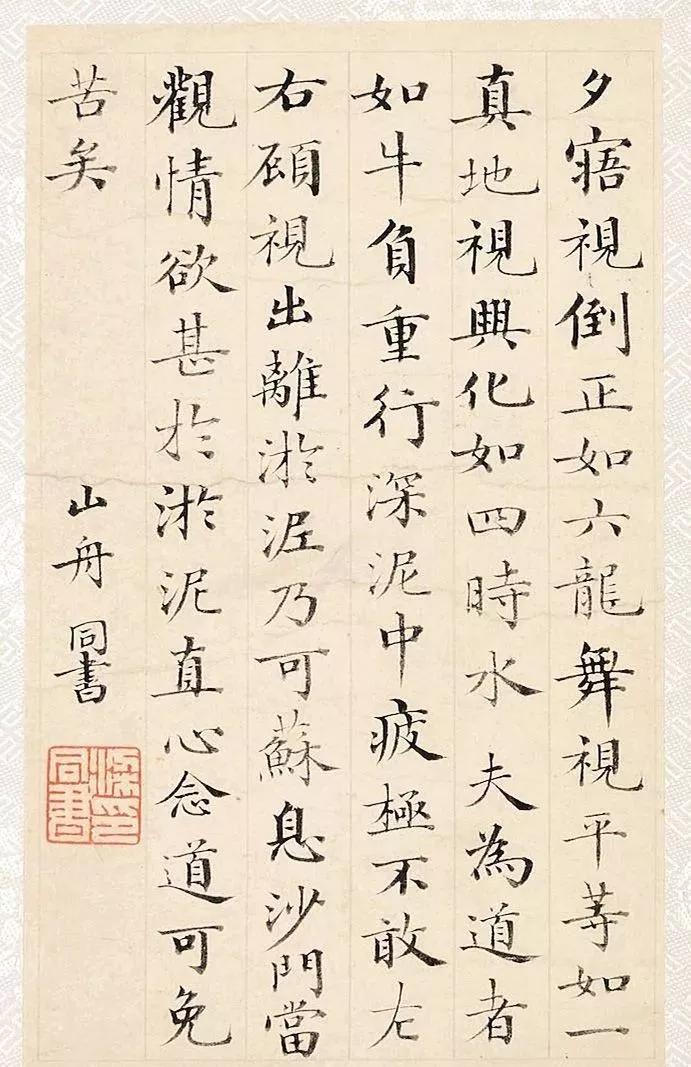 夕寤視倒正如六龍舞視平等如一
真地視興化如四時水夫為道者
如牛負重行深泥中疲極不敢左
右顧視出離淤泥乃可蘇息沙門當
觀情欲甚於淤泥直心念道可免
苦矣
山舟同書
梁同書印